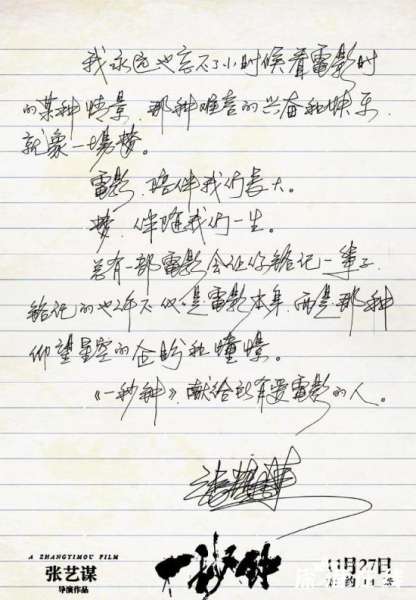 我永远也忘不了小时候看電影时
的某种情景,那种难言的兴奋和快乐,
就象一場梦。
電影,陪伴我们長大。
梦,伴随我们一生。
总有一部電影会让你銘记一辈子,
銘记的也许不仅是電影本身,而是那种
仰望星空的企盼和憧憬。
《一秒钟》,献给所有爱電影的人。
A ZHANGYIMOU FILM
张艺谋
导演作品
一秒钟
11月27日